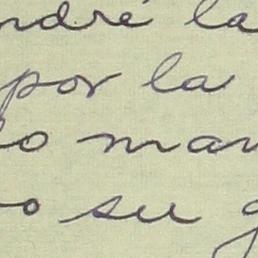 ndré la
por la
lo man
o su g